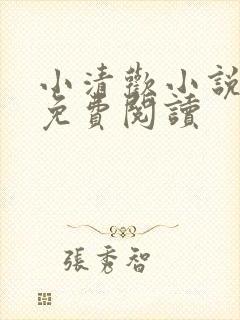 小清歡小說
免費閱讀
張秀智